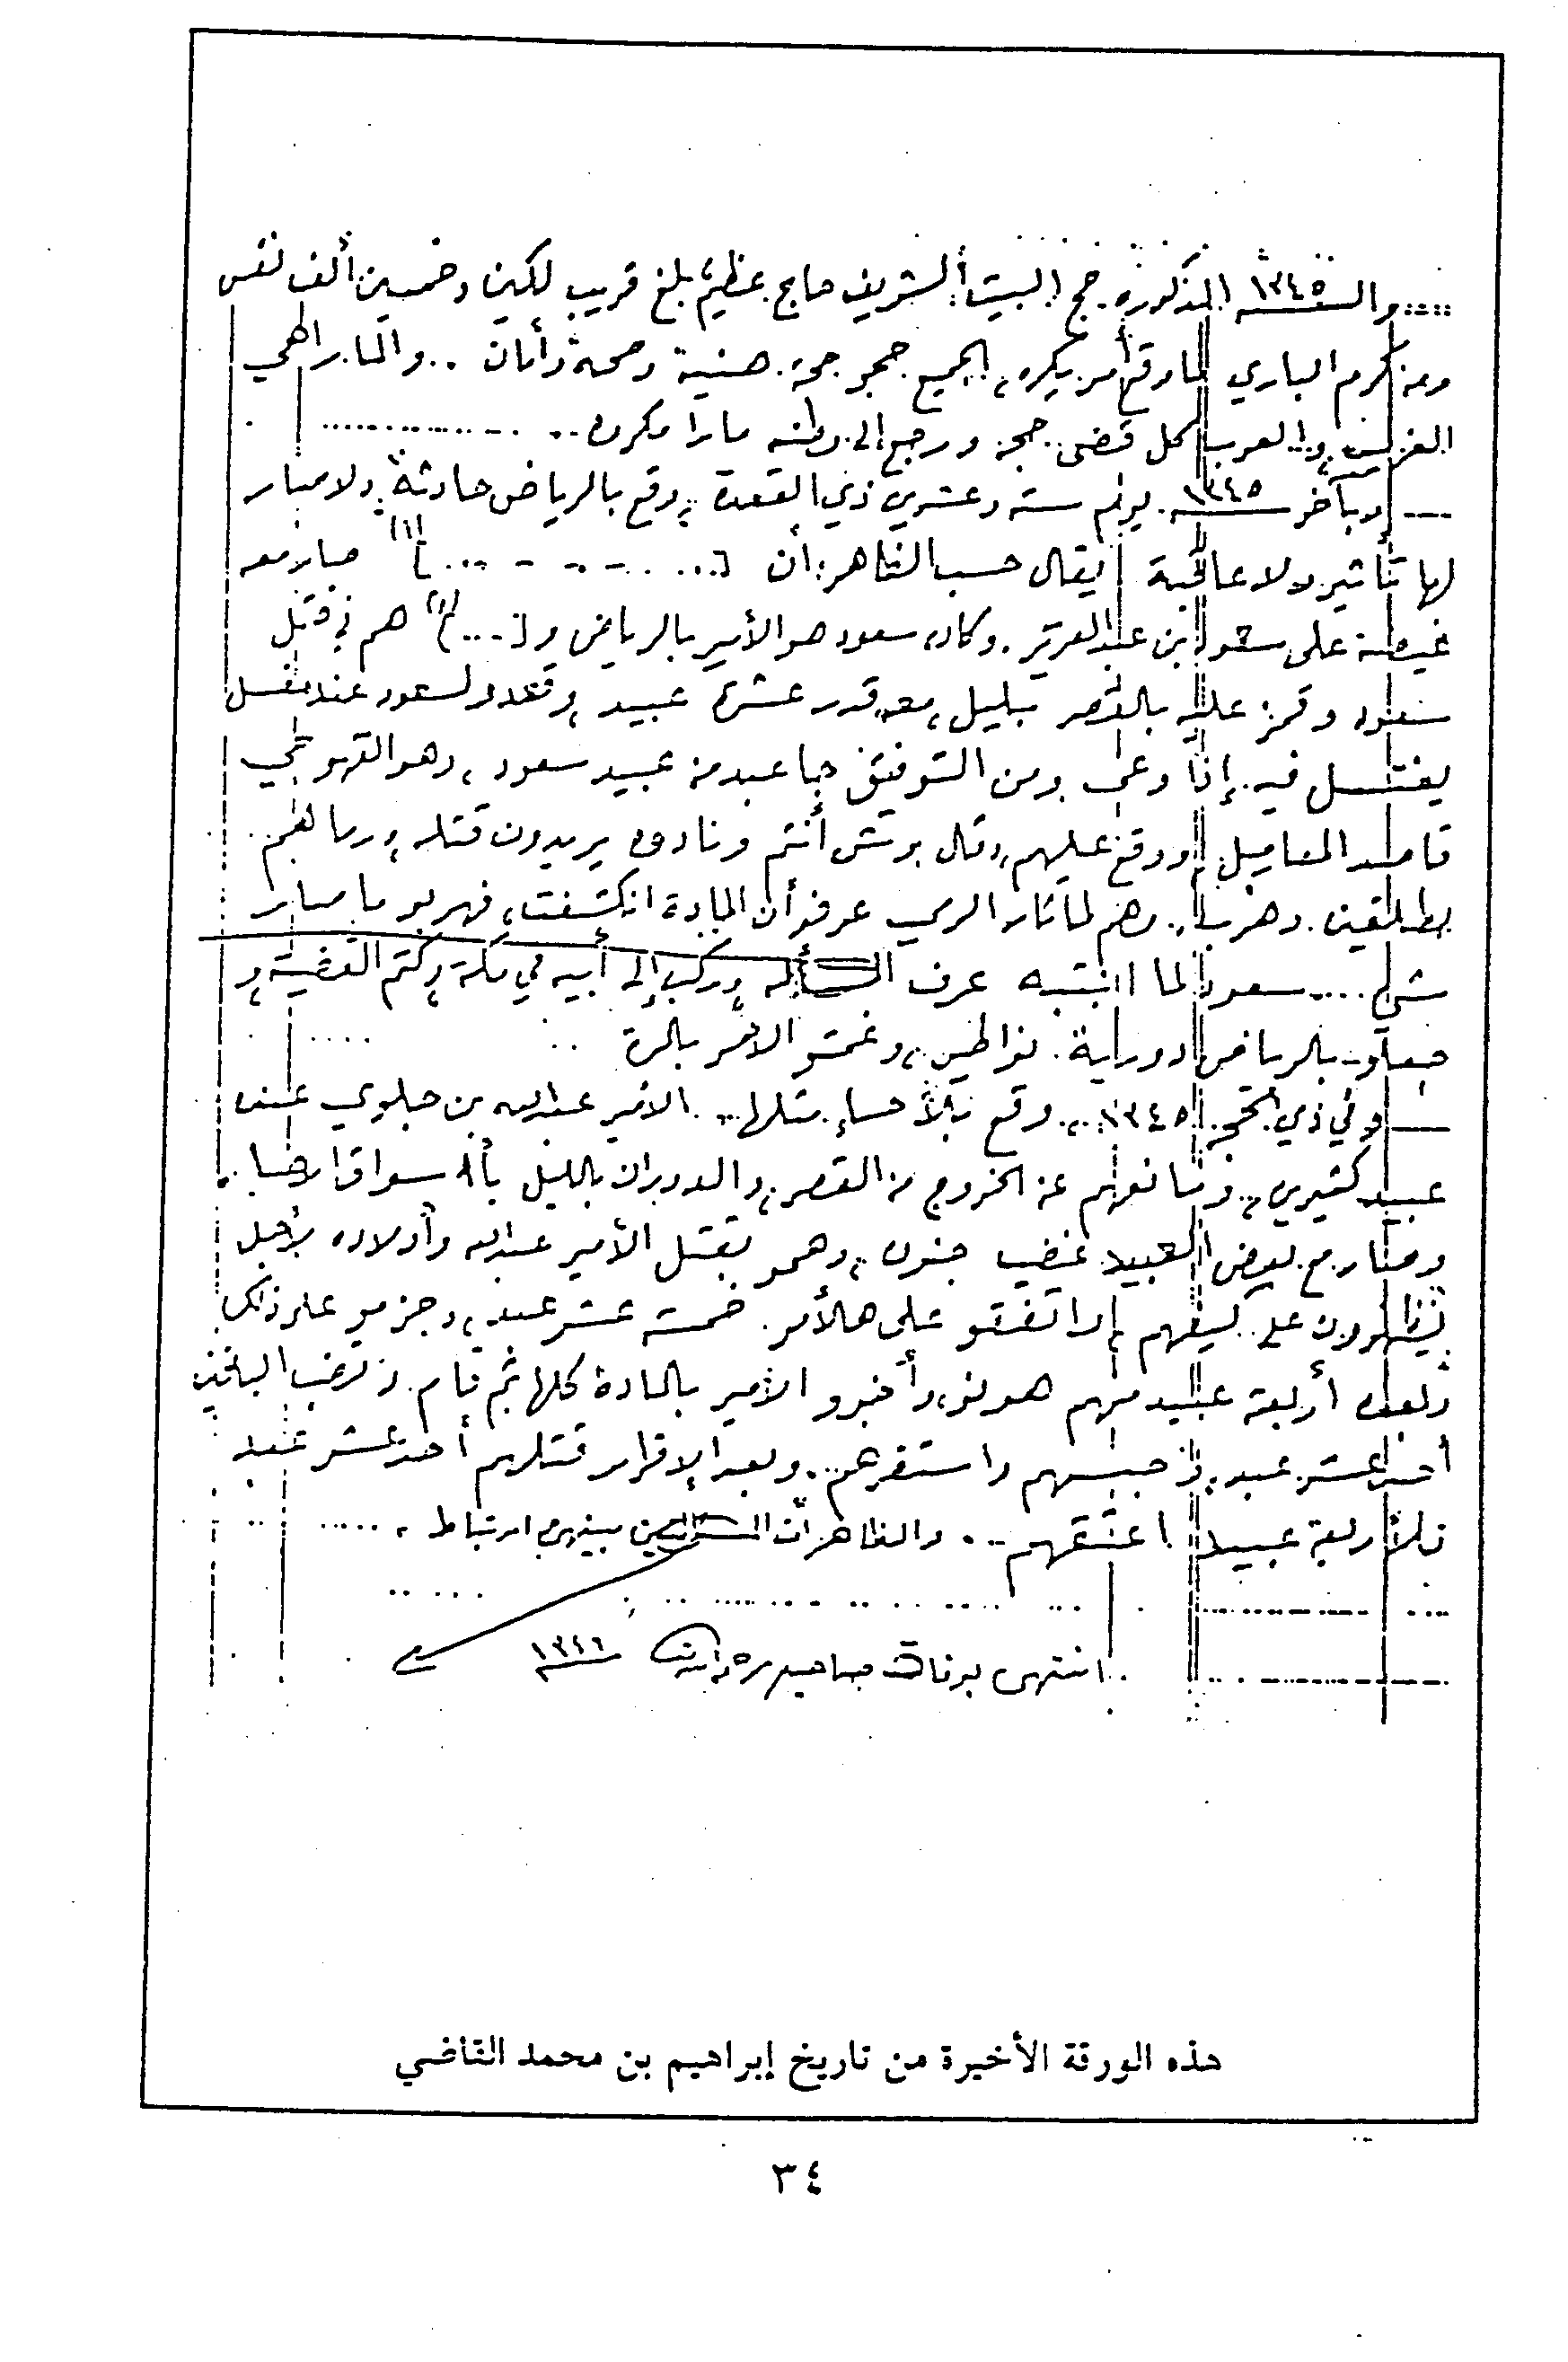 والسنة ١٣٤٥ المذكوره حج البيت الشريف حاج عظيم، بلغ قريب لكين وخمسين ألف نفس
ومن كرم الباري ما وقع أمر يكره، الجميع حجو حجة هنية وصحة وأمان .. والمابراهي
الفرنس، والعرب كل قضى حجه ورجع إلى وطنه ما را مكروه ..
وبآخر ١٣٤٥ يوم ستة وعشرين ذي القعدة، وقع بالرياض حادثة، ولا صار
لها تأثير ولا عاقبة يقال حسب الظاهر: أن [.........] (١) صار معه
غيضة على سعود بن عبدالعزيز. وكان سعود هو الأمير بالرياض و[....](١) هم في قتل
سعود وقمز عليه بالقصر بليل، معه قدر عشرة عبيد، وقعدو لسعود عند مغسل
يغتسل فيه إذا وعى ومن التوفيق جا عبد من عبيد سعود، وهو القهوجي
قاصد المعاميل ووقع عليهم، وقال وش أنتم ونادوه يريدون قتله، ورماهم
بطلقين وهرب، وهم لما ثار الرمي عرفو أن المادة انكشفت، فهربو ما صار
شي .... سعود لما انتبه عرف المسألة، وركب إلى أبيه في مكة، وكتم القضية، و
جعلو بالرياض دوراية نواطير، وغمتو الأمر بالمرة
وفي ذي الحجة ١٣٤٥، وقع بالأحساء مثلها .. الأمير عبدالله بن جلوي عنده
عبيد كثيرين، ومانعهم عن الخروج من القصر، والدوران بالليل بالأسواق
وصار مع بعض العبيد غضب جنون، وهمو بقتل الأمير عبدالله وأولاده لأجل
يظهرون على كيفهم واتفقو على هالأمر خمسة عشر عبد، وجزمو على ذلك
وبعده أربعة عبيد منهم هونو، وأخبرو الأمير بالمادة كلها ثم قام وقضب الباقين
أحد عشر عبد، وحبسهم واستقرهم.. وبعد الإقرار قتلهم أحد عشر عبد
والأربعة عبيد أعتقهم .. والظاهر أن المسألتين بينهن ارتباط.
انتهى ١٣٤٦
هذه الورقة الأخيرة من تاريخ إبراهيم بن محمد القاضي
٣٤